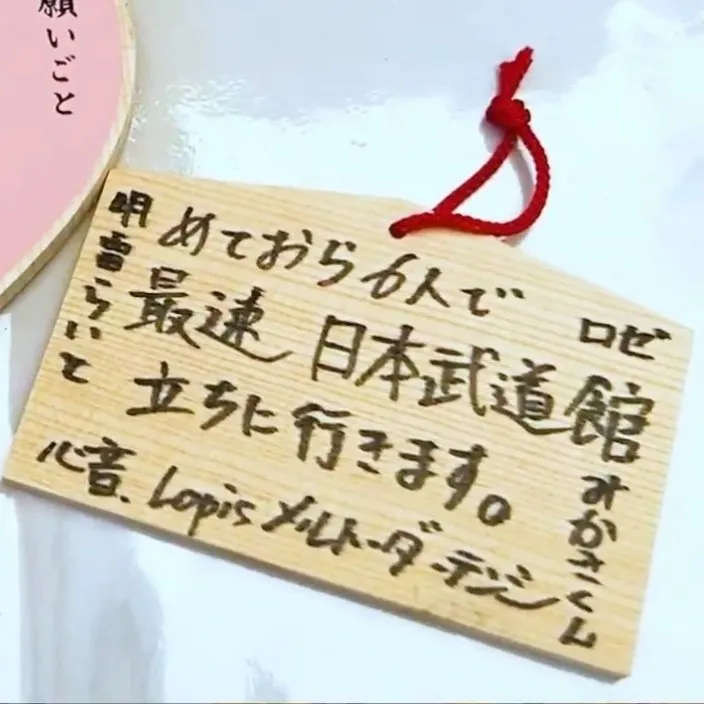 願いごと
めておら6人で
最速 日本武道館
立ちに行きます。
明雷らいと
ロゼ
みかさくん
心音、Lapis メルト・ダ・テンシ